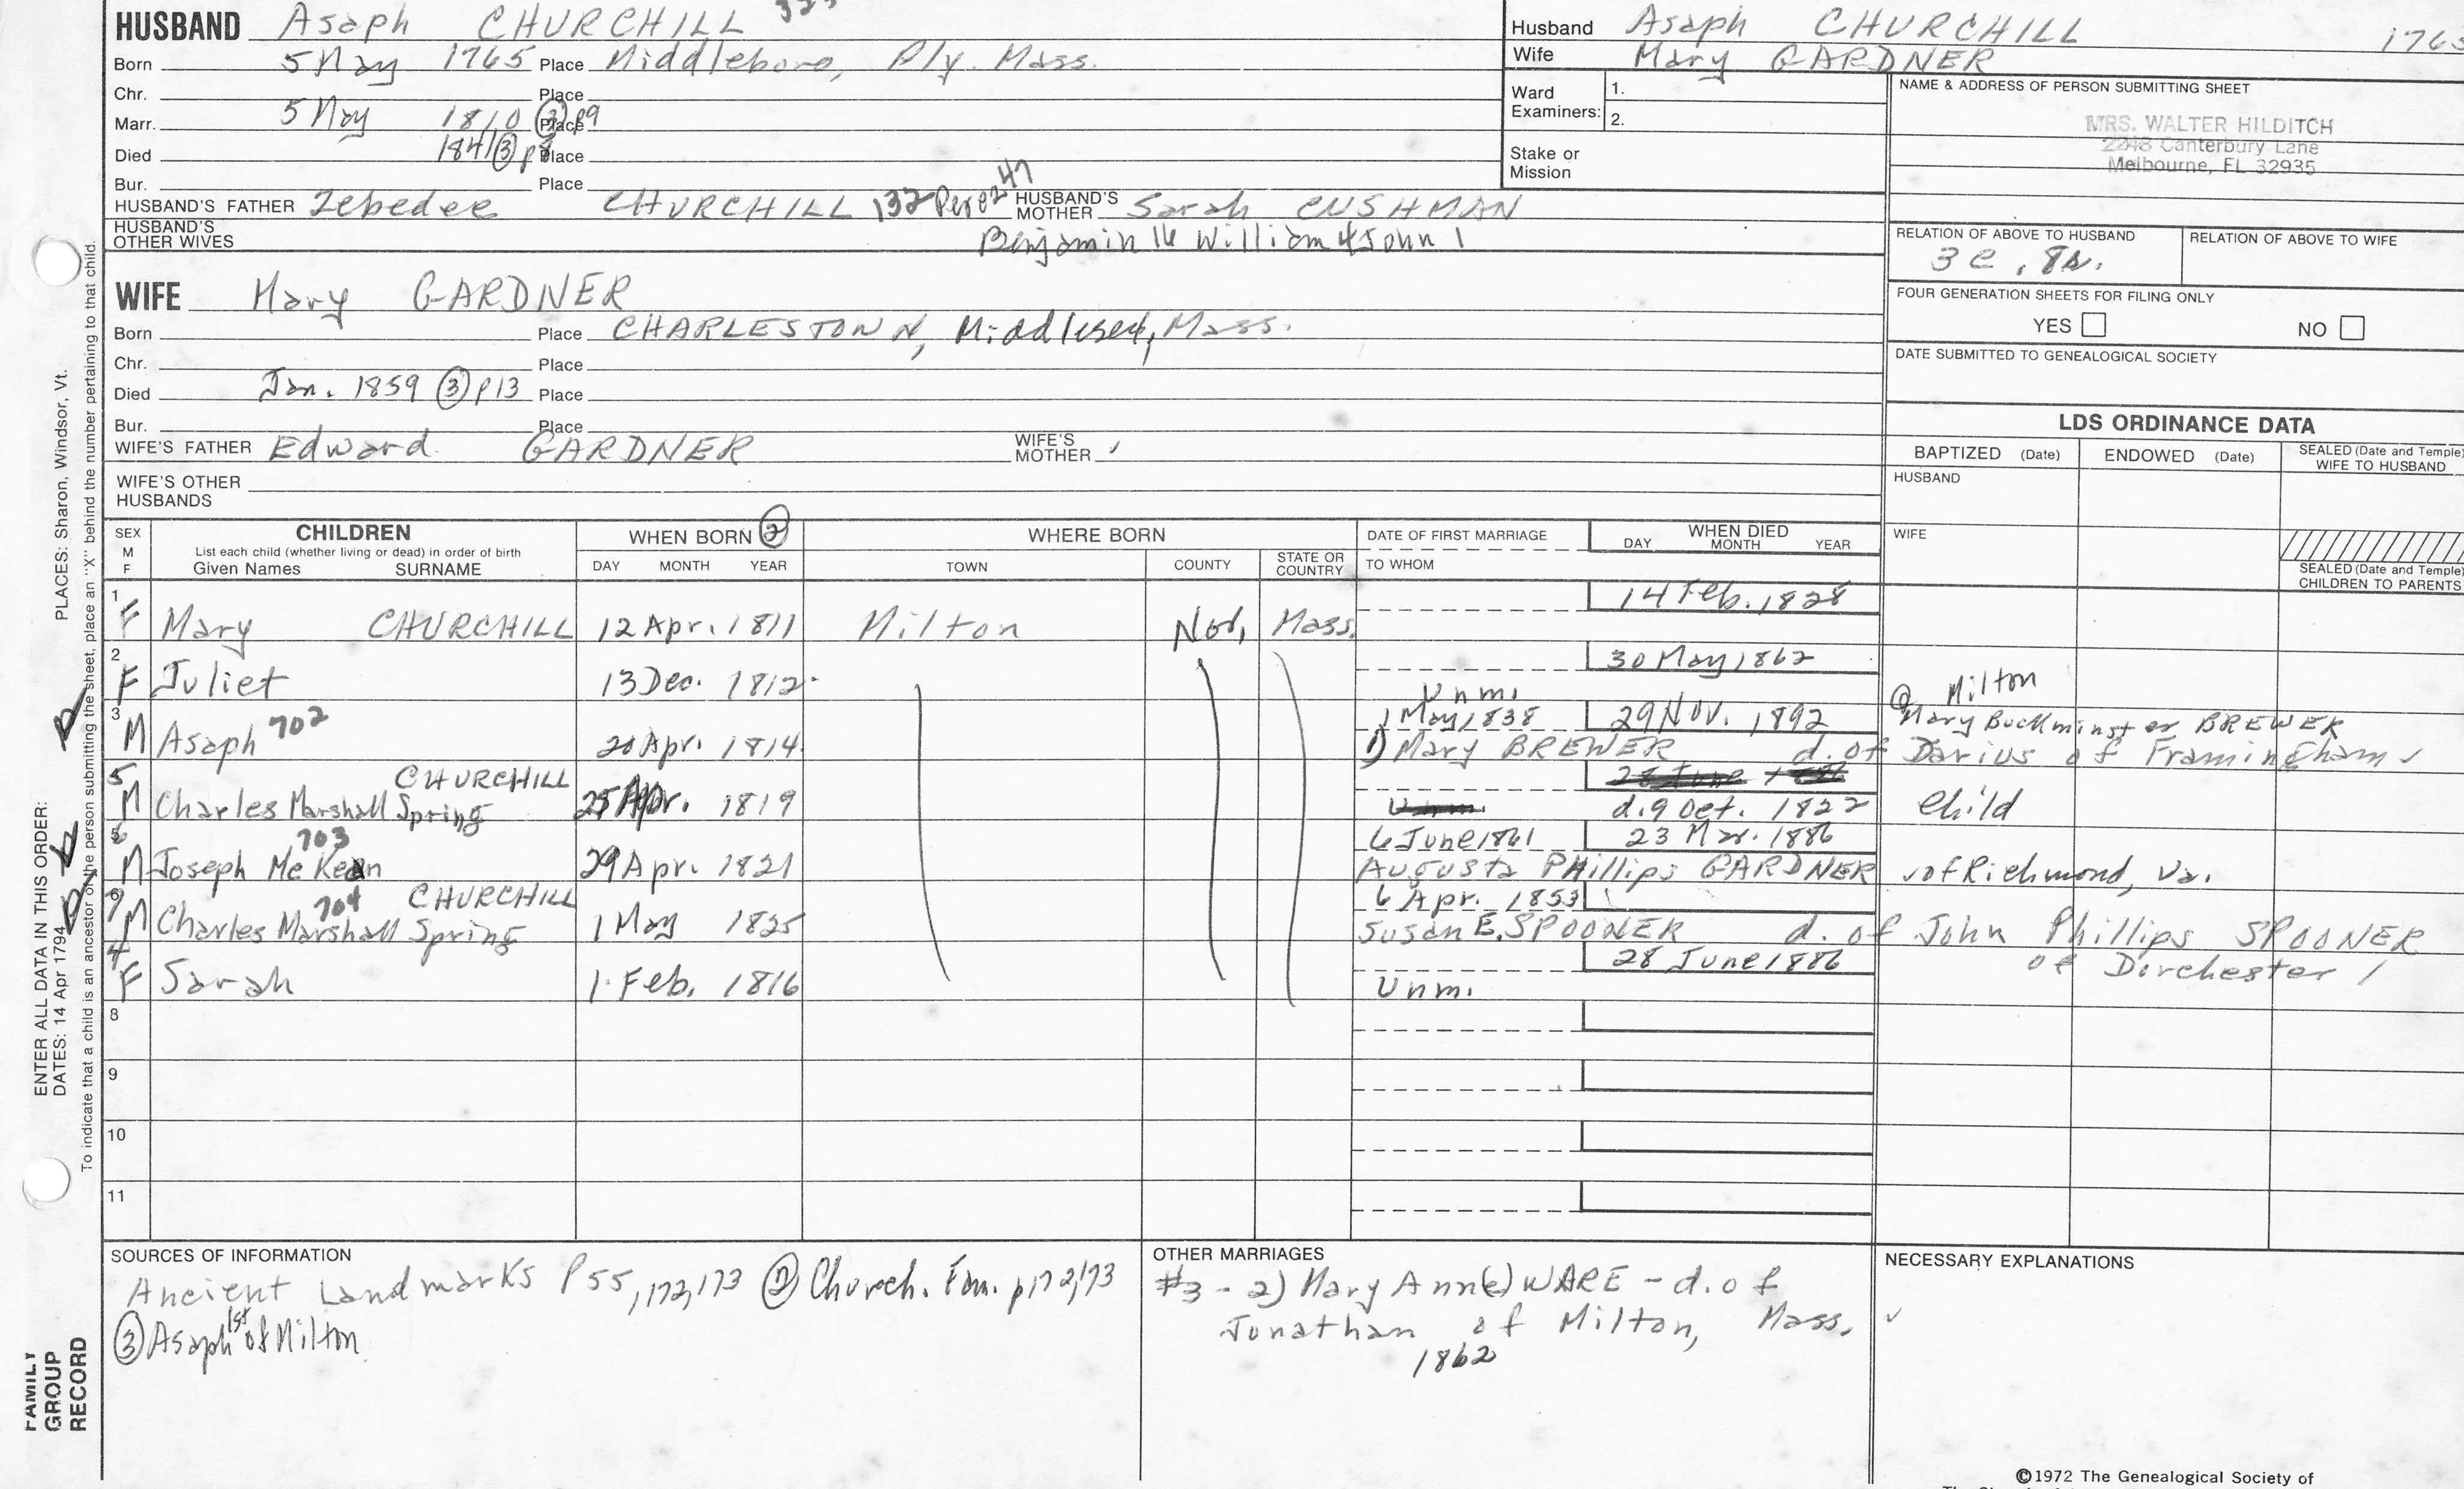 HUSBAND Asaph CHURCHILL
Born 5 May 1765 Place Middleboro, Ply. Mass.
Chr. Place
Marr. 5 May 1810 ③ p9 Place
Died 1841 ③ p8 Place
Bur. Place
HUSBAND'S FATHER Zebedee CHURCHILL 132 Perez 47 HUSBAND'S MOTHER Sarah CUSHMAN
HUSBAND'S OTHER WIVES Benjamin 16 William 4 John 1
WIFE Mary GARDNER
Born Place CHARLESTOWN, Middlesex, Mass.
Chr. Place
Died Jan. 1859 ③ p13 Place
Bur. Place
WIFE'S FATHER Edward GARDNER WIFE'S MOTHER
WIFE'S OTHER HUSBANDS
Husband Asaph CHURCHILL
Wife Mary GARDNER
Ward Examiners: 1.
2.
Stake or Mission
NAME & ADDRESS OF PERSON SUBMITTING SHEET
MRS. WALTER HILDITCH
2248 Canterbury Lane
Melbourne, FL 32935
RELATION OF ABOVE TO HUSBAND RELATION OF ABOVE TO WIFE
3c, 8r.
FOUR GENERATION SHEETS FOR FILING ONLY
YES NO
DATE SUBMITTED TO GENEALOGICAL SOCIETY
LDS ORDINANCE DATA
BAPTIZED (Date) ENDOWED (Date) SEALED (Date and Temple) WIFE TO HUSBAND
HUSBAND
WIFE
SEALED (Date and Temple) CHILDREN TO PARENTS
SEX M F CHILDREN List each child (whether living or dead) in order of birth Given Names SURNAME
WHEN BORN ② DAY MONTH YEAR
WHERE BORN TOWN COUNTY STATE OR COUNTRY
DATE OF FIRST MARRIAGE TO WHOM
WHEN DIED DAY MONTH YEAR
1 F Mary CHURCHILL 12 Apr. 1811 Milton Nor, Mass. 14 Feb. 1828
2 F Juliet 13 Dec. 1812 Unm. 30 May 1862
3 M Asaph 702 20 Apr. 1814 1 May 1838 29 Nov. 1892 @ Milton
1) Mary BREWER d. of Darius of Framingham
Mary Buckminster BREWER
5 M Charles Marshall Spring CHURCHILL 25 Apr. 1819 d. 9 Oct. 1822 Child
6 M Joseph McKean 703 29 Apr. 1821 6 June 1861 23 Mar. 1886
Augusta Phillips GARDNER of Richmond, Va.
7 M Charles Marshall Spring 704 CHURCHILL 1 May 1825 6 Apr. 1853
Susan E. SPOONER d. of John Phillips SPOONER
of Dorchester
4 F Sarah 1 Feb. 1816 Unm. 28 June 1886
8
9
10
11
SOURCES OF INFORMATION
Ancient Landmarks P 55, 172, 173 ② Church. Fam. p 172, 173
③ Asaph 1st of Milton
OTHER MARRIAGES
#3 - 2) Mary Ann(e) WARE - d. of
Jonathan of Milton, Mass.
1862
NECESSARY EXPLANATIONS
©1972 The Genealogical Society of
ENTER ALL DATA IN THIS ORDER:
DATES: 14 Apr 1794
PLACES: Sharon, Windsor, Vt.
To indicate that a child is an ancestor of the person submitting the sheet, place an "X" behind the number pertaining to that child.
FAMILY
GROUP
RECORD